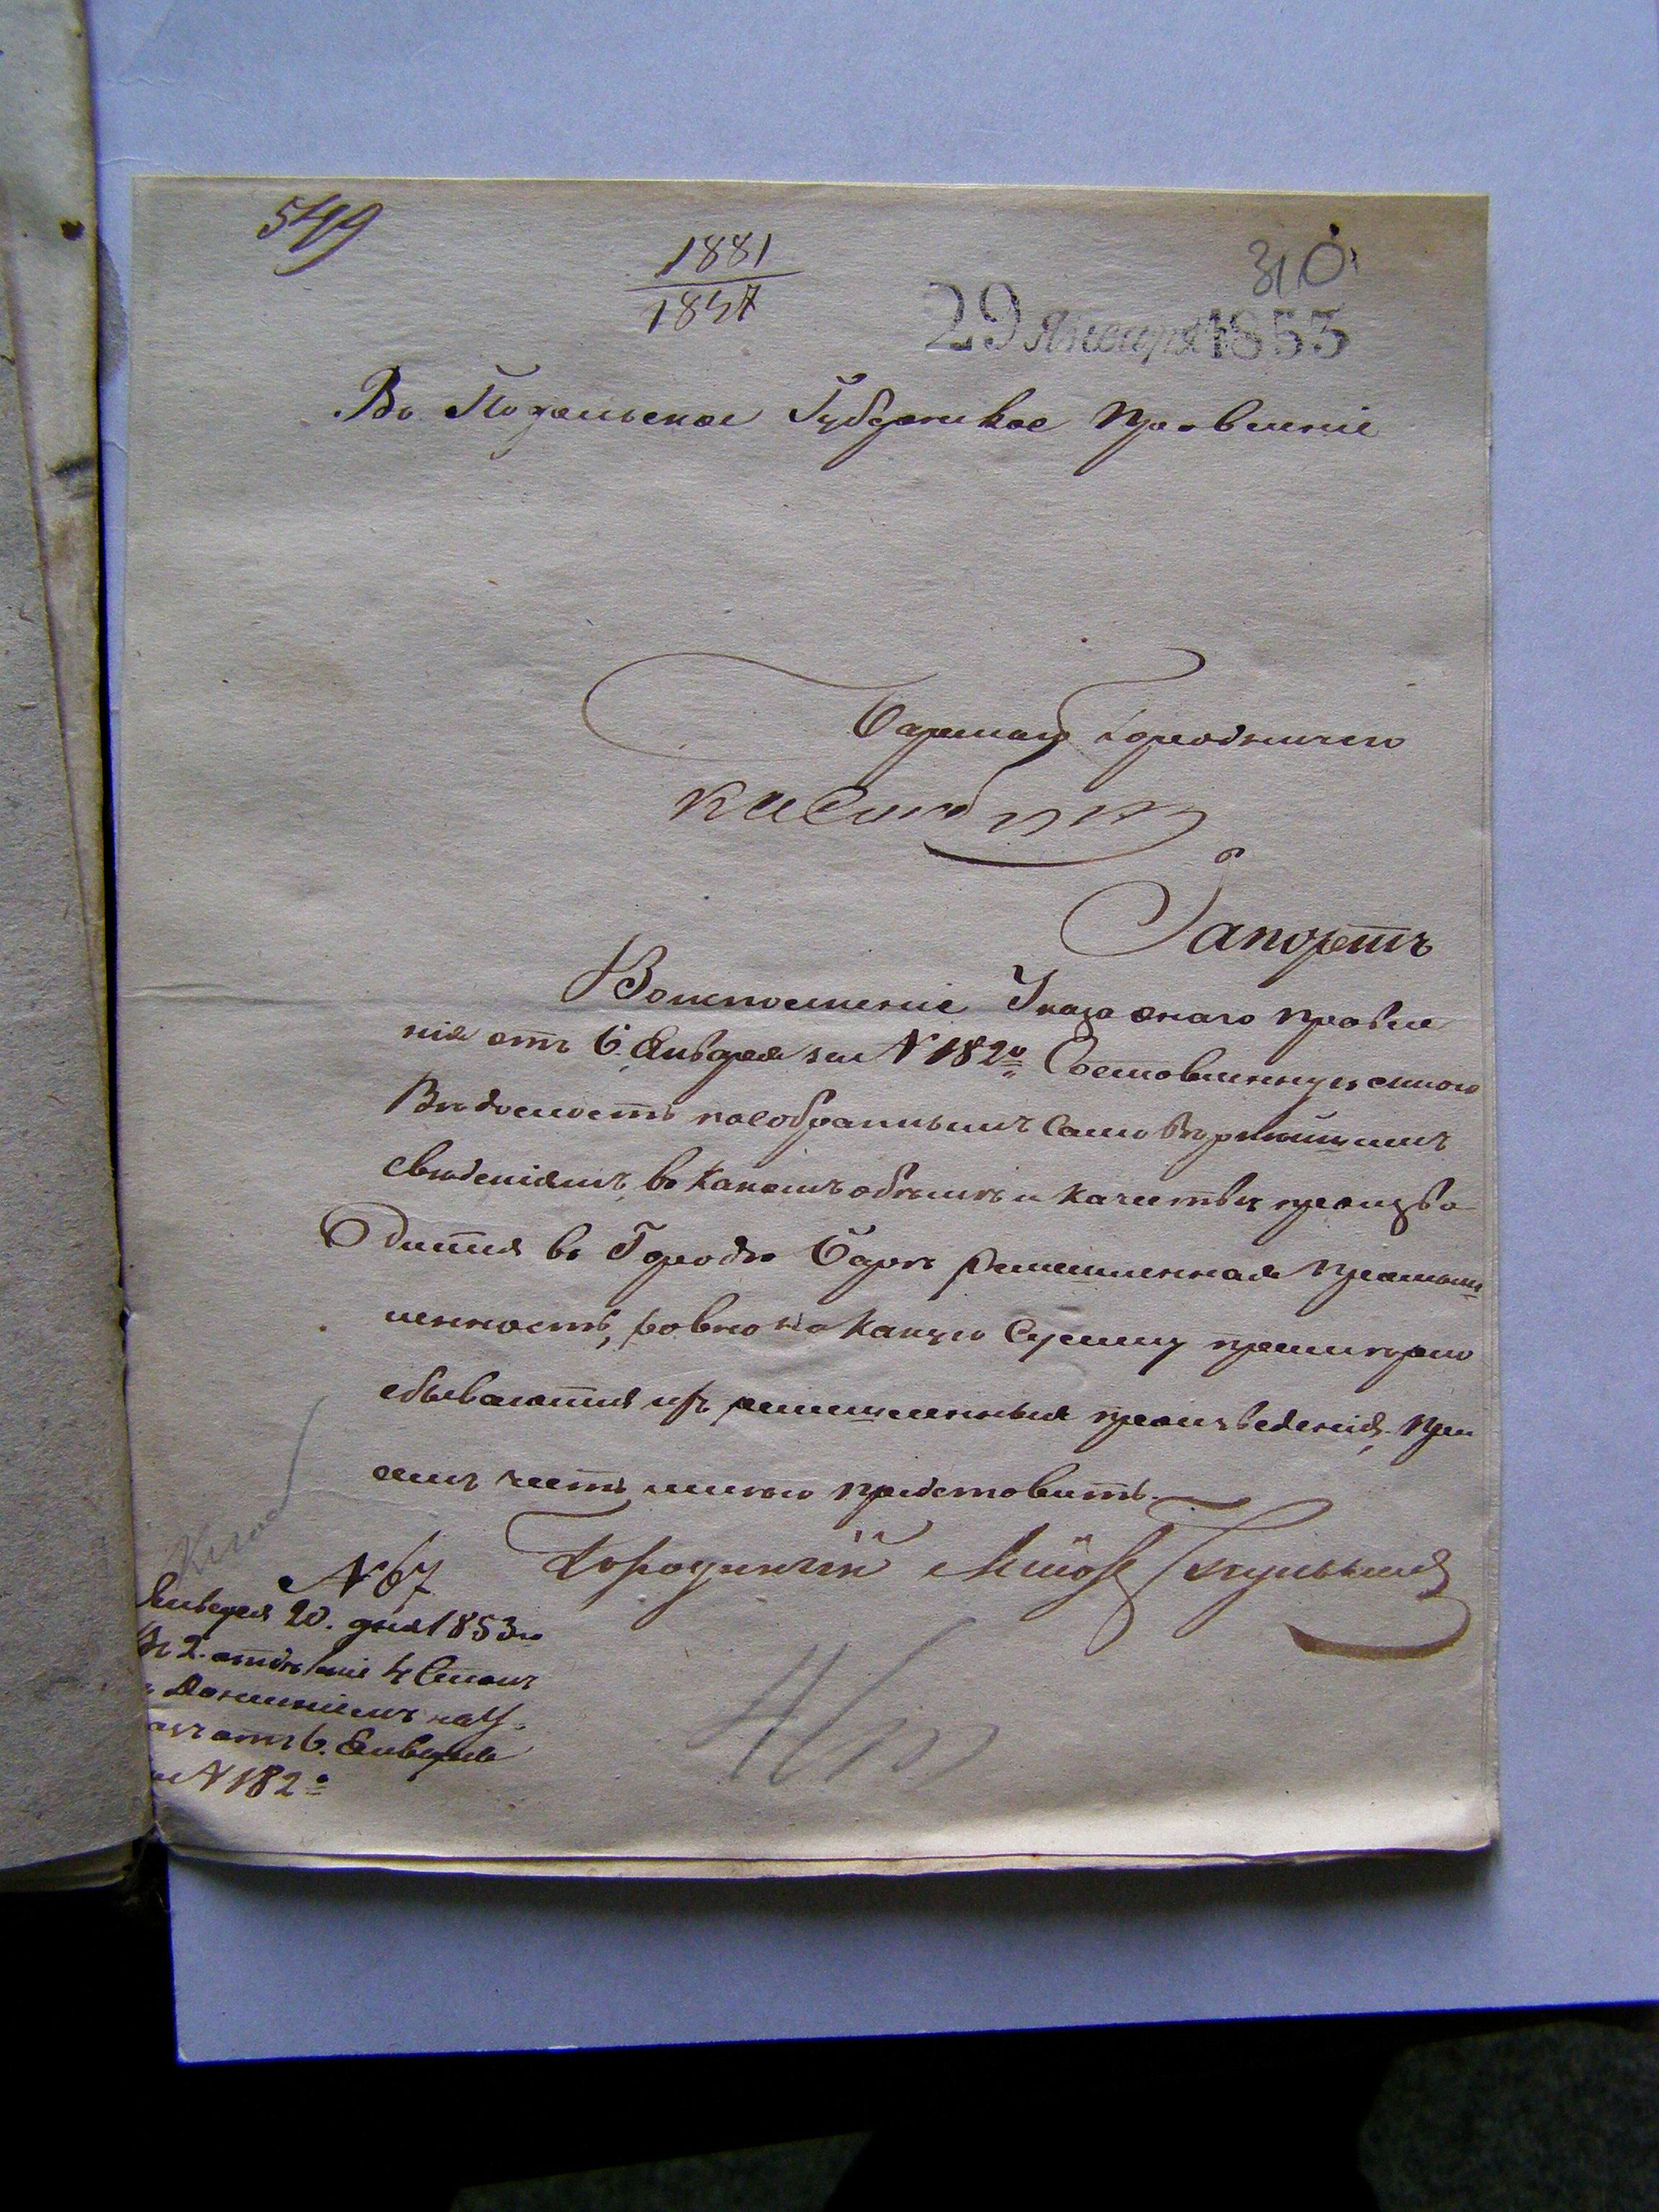 549
1881
1847
310
29 Января 1853
Въ Подольское Губернское Правленіе
Барскаго Городничаго
Рапортъ
Воисполненіе Указа онаго Правле
нія отъ 6. Января за № 182º Составленную мною
Вѣдомость пособраннымъ Самовѣрнѣйшимъ
свѣденіямъ, въ какомъ объемѣ и качествѣ произво-
дится въ Городѣ Барѣ ремесленная промыш-
ленность, ровно на какую Сумму примѣрно
сбываются ихъ ремесленныя произведенія, при
семъ честь имѣю представить.
Городничій Маіоръ
№ 67
Января 20. дня 1853 го
2. отдѣленіе 4 Столъ
отъ 6. Января
№ 182º